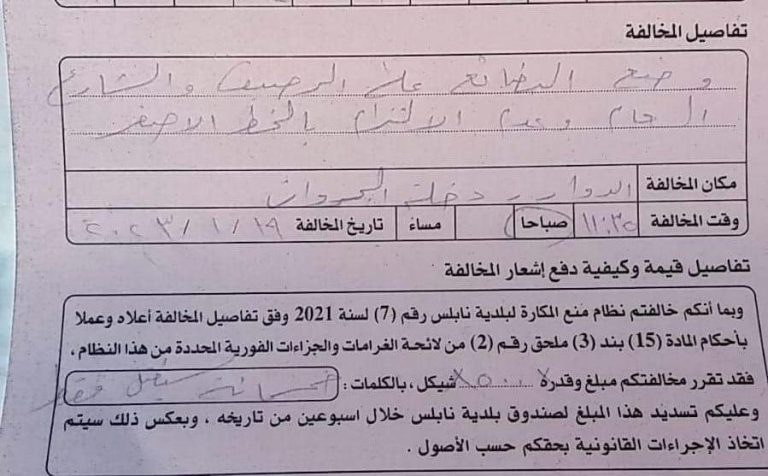 تفاصيل المخالفة
وضع البضائع على الرصيف والشارع
العام وعدم الالتزام بالخط الاصفر
مكان المخالفة الدوار - دخلة
وقت المخالفة ١١:٣٥ صباحا مساء تاريخ المخالفة ١٩ / ١ / ٢٠٢٣
تفاصيل قيمة وكيفية دفع إشعار المخالفة
وبما أنكم خالفتم نظام منع المكارة لبلدية نابلس رقم (7) لسنة 2021 وفق تفاصيل المخالفة أعلاه وعملا
بأحكام المادة (15) بند (3) ملحق رقم (2) من لائحة الغرامات والجزاءات الفورية المحددة من هذا النظام ،
فقد تقرر مخالفتكم مبلغ وقدرة ٥٠٠ شيكل ، بالكلمات : خمسمائة شيكل فقط
وعليكم تسديد هذا المبلغ لصندوق بلدية نابلس خلال اسبوعين من تاريخه ، وبعكس ذلك سيتم
اتخاذ الإجراءات القانونية بحقكم حسب الأصول .